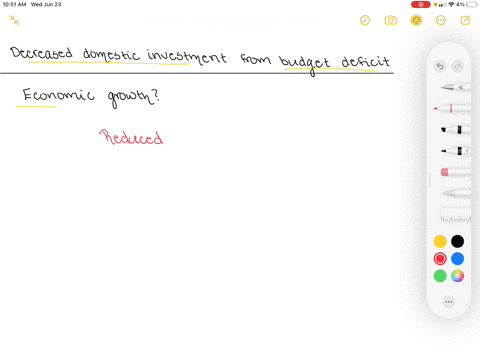 10:51 AM Wed Jun 23
4%
Decreased domestic investment from budget deficit
Economic growth?
Reduced